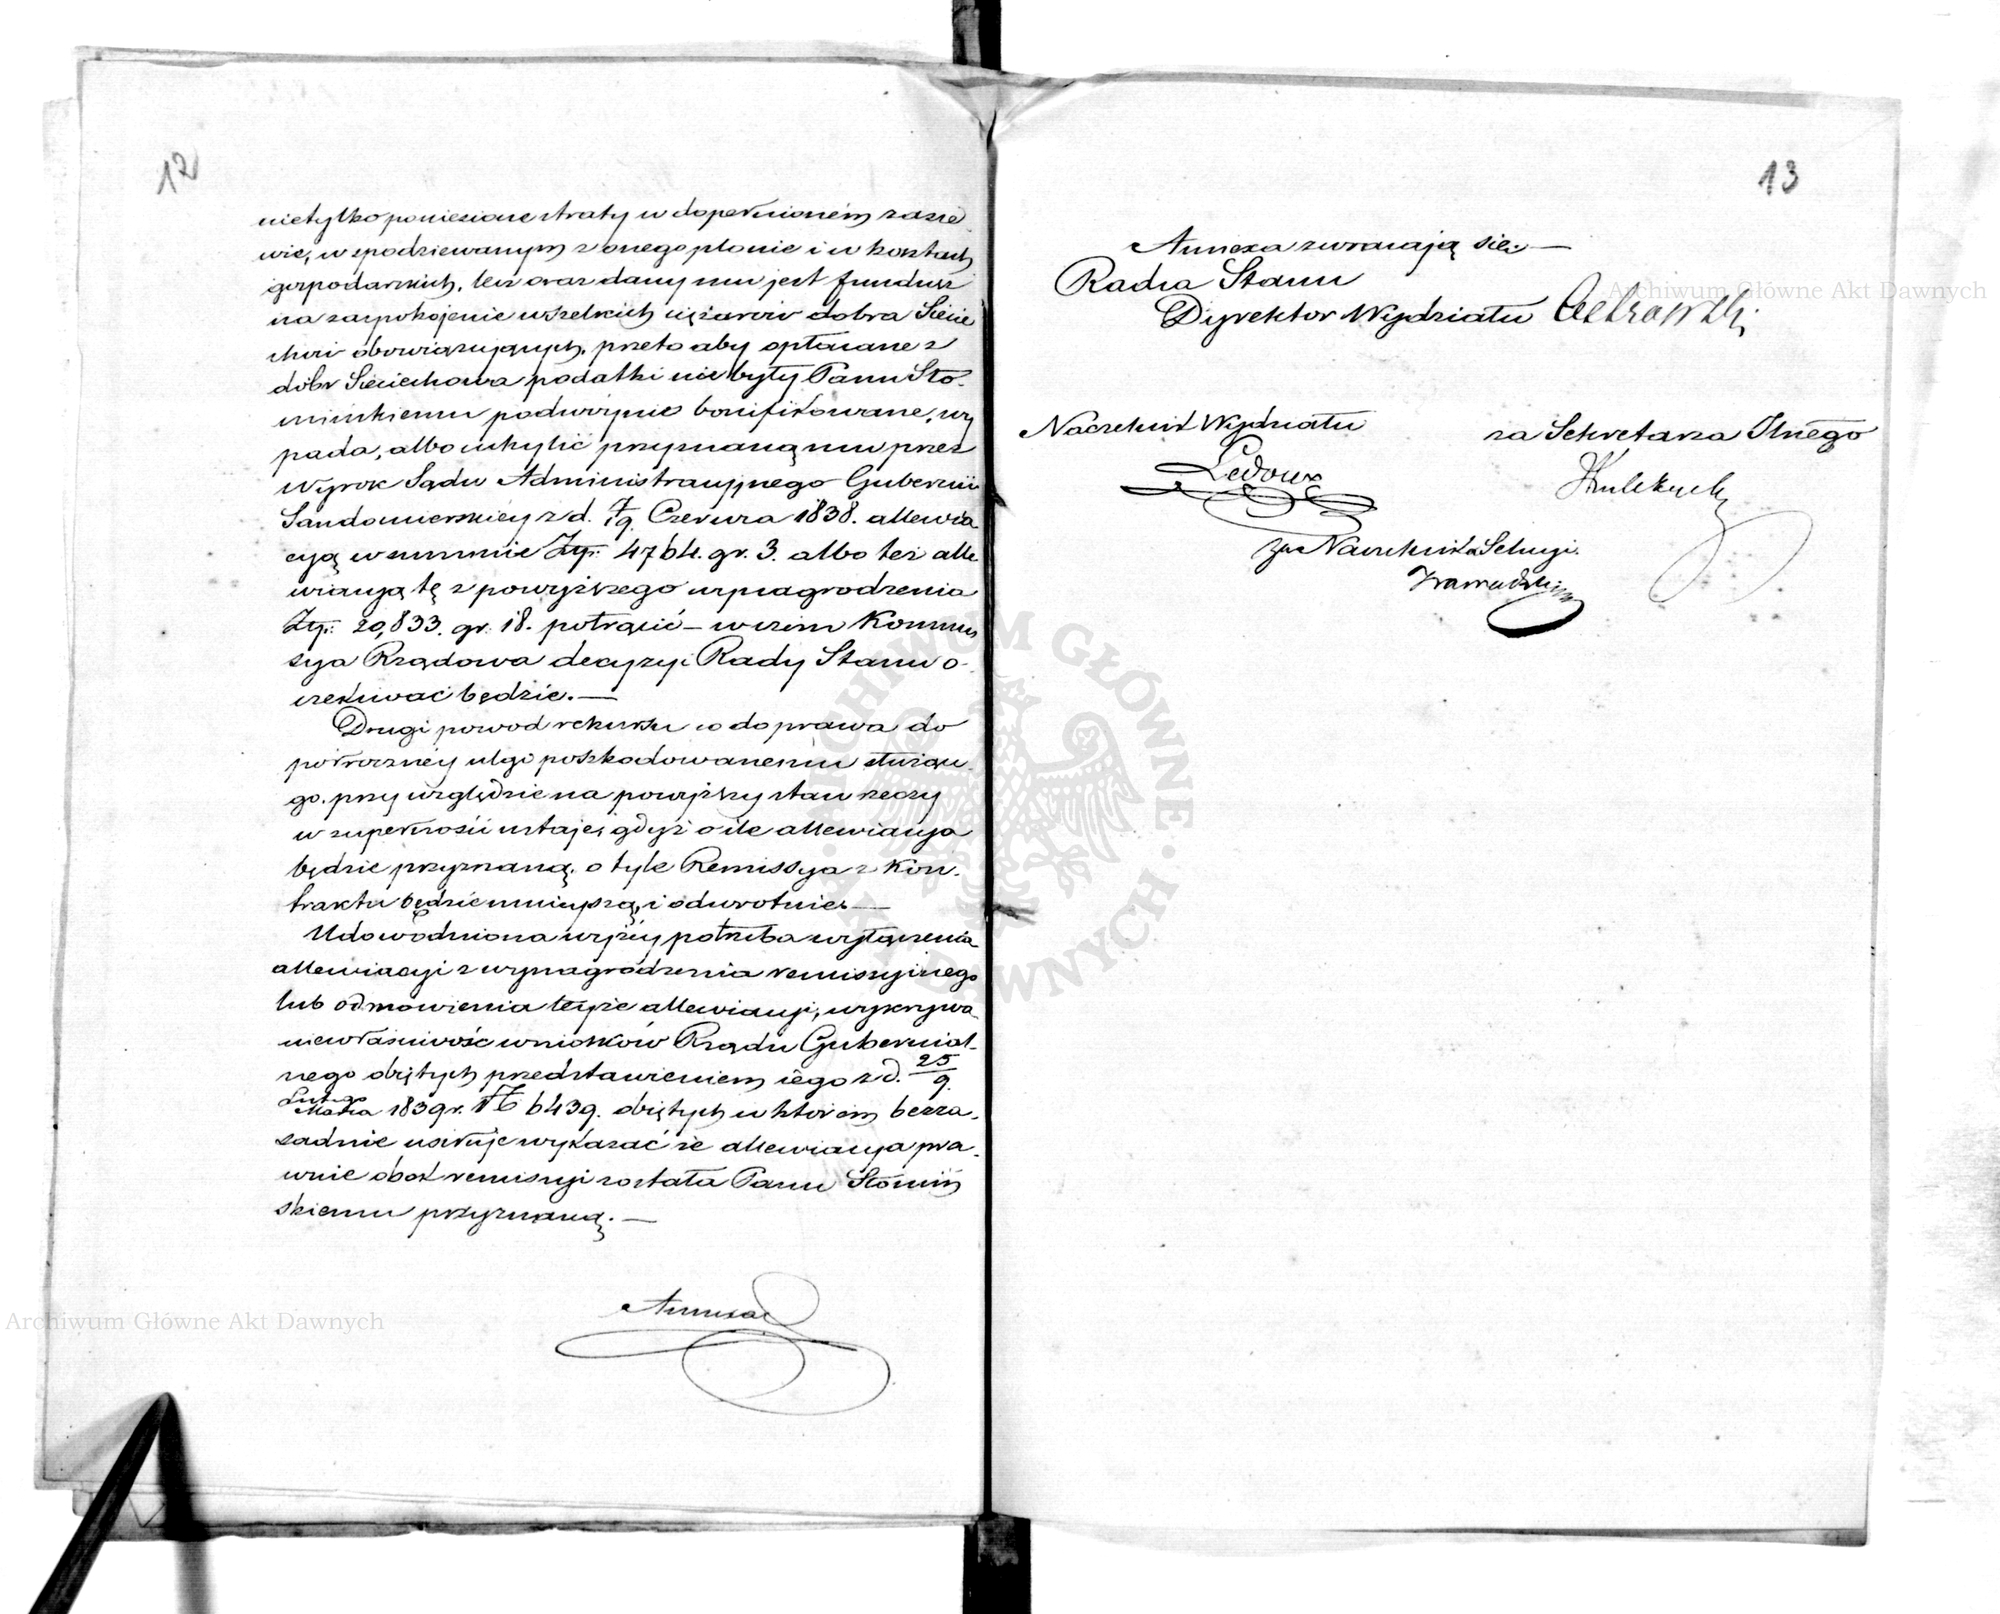 12
nietylko poniesione straty w dopełnioném zasie-
wie, w spodziewanym z onego plonie i w kosztach
gospodarskich, lecz oraz dany mu jest fundusz
na zaspokojenie wszelkich ciężarów dobra Siecie
chów obowiązujących, przeto aby opłacane z
dóbr Sieciechowa podatki nie były Panu Sło-
mińskiemu podwójnie bonifikowane, wy
pada, albo uchylić przyznaną mu przez
Wyrok Sądu Administracyjnego Gubernii
Sandomierskiey z d. 7/19. Czerwca 1838. allewia
cyą w summie Złp: 4764. gr. 3. albo też alle
wiacyą tę z powyższego wynagrodzenia
Złp: 20,833. gr. 18. potrącić – w czém Kommis
sya Rządowa decyzyi Rady Stanu o-
czekiwać będzie. —
Drugi powod rekursu co do prawa do
półroczney ulgi poszkodowanemu służącé-
go, przy względzie na powyższy stan rzeczy
w zupełności ustaje, gdyż o ile allewiacya
będzie przyznaną, o tyle Remissya z Kon-
traktu będzie mnieyszą, i odwrotnie. —
Udowodniona wyżéy potrzeba wyłączenia
allewiacyi z wynagrodzenia remissyjnego
lub odmówienia teyże allewiacyi, wykrywa
niewłaściwość wniosków Rządu Gubernial-
nego objętych przedstawieniem iego z d. 25/9.
Lutego
Marca 1839 r. N 6439. objętych w którem bezza-
sadnie usiłuje wykazać że allewiacya pra-
wnie obok remissyi została Panu Słomiń
skiemu przyznaną. —
Annexa
13
Annexa zwracają się. —
Radca Stanu
Dyrektor Wydziału
Naczelnik Wydziału
za Sekretarza Jlnego
Ledoux
Za Naczelnika Sekcyi.
Archiwum Główne Akt Dawnych
Archiwum Główne Akt Dawnych
ARCHIWUM GŁÓWNE AKT DAWNYCH